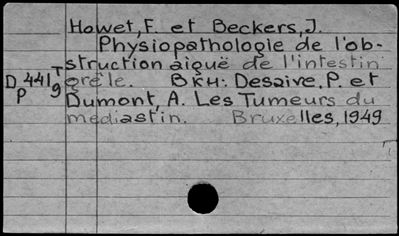 Hawet, F. et Beckers, J.
Physiopathologie de l'ob-
struction aiguë de l'intestin
grêle. Вкн: Desaive, P. et
Dumont, A. Les Tumeurs du
médiastin. Bruxelles, 1949
D 441 T
P 9